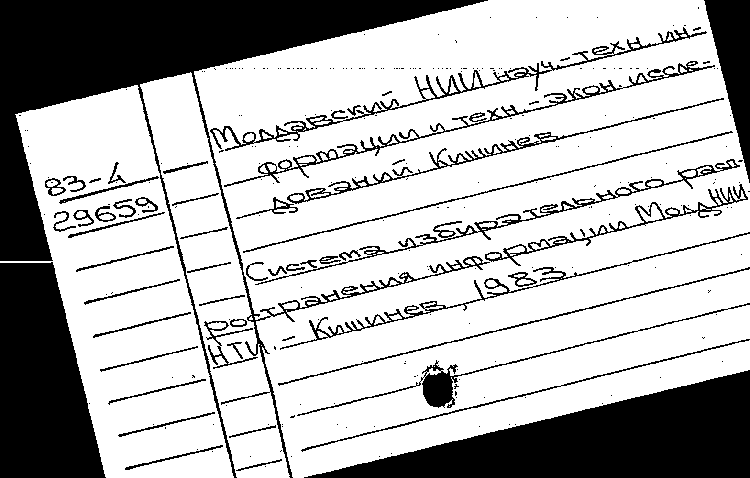 83-4
29659
Молдавский НИИ науч.-техн. ин-
формации и техн.-экон. иссле-
дований. Кишинев.
Система избирательного расп-
ространения информации МолдНИИ
НТИ. - Кишинев, 1983.